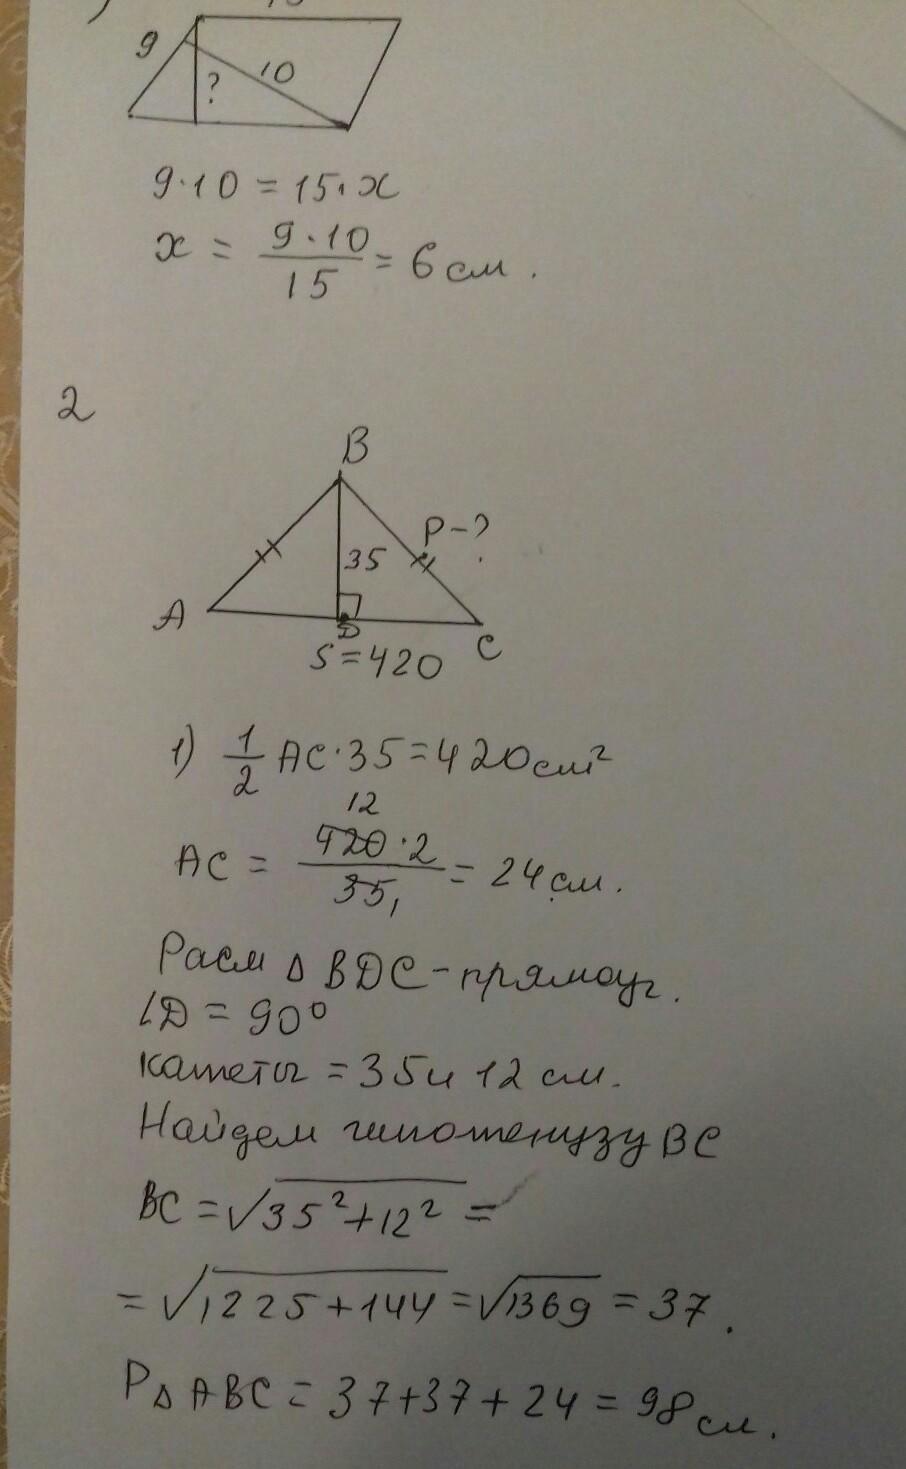 9
10
?
9·10 = 15·x
x = 9·10/15 = 6 см.
2
B
P-?
35
A
D
C
S=420
1) 1/2 AC·35=420см²
12
AC = 420·2/35 = 24 см.
1
Расм △ BDC-прямоуг.
∠D = 90°
катеты = 35 и 12 см.
Найдем гипотенузу BC
BC = √35²+12² =
= √1225+144 = √1369 = 37.
P△ABC = 37+37+24 = 98 см.